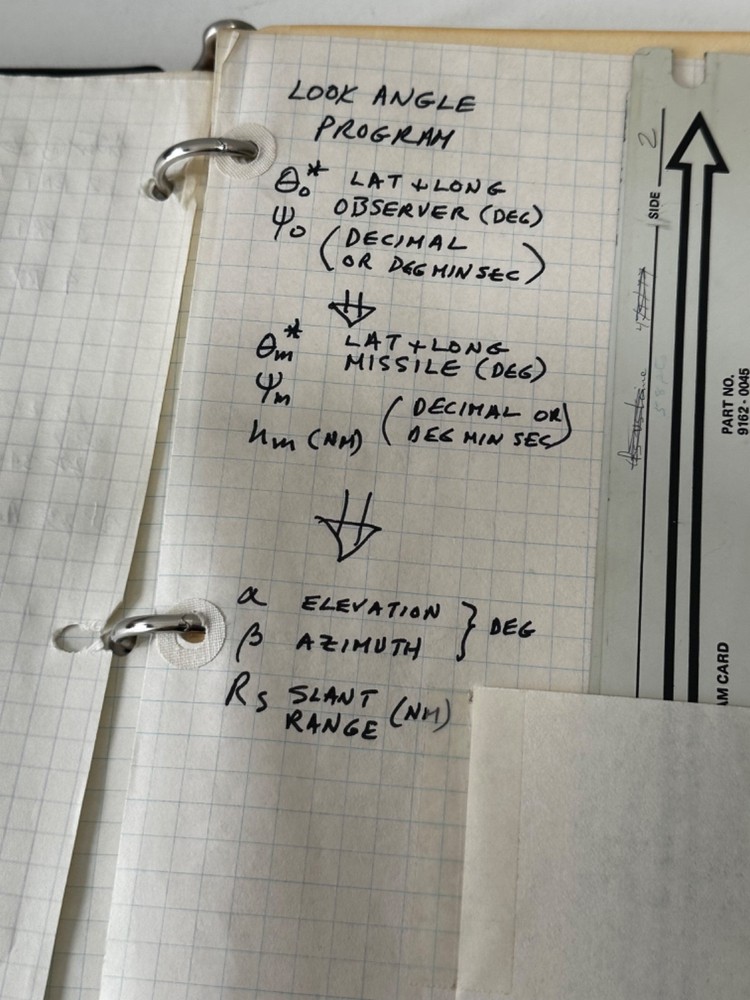 LOOK ANGLE
PROGRAM
θo* LAT + LONG
OBSERVER (DEG)
ψo (DECIMAL
OR DEG MIN SEC)
θm* LAT + LONG
MISSILE (DEG)
ψm
(DECIMAL OR
hm (NM) DEG MIN SEC)
α ELEVATION } DEG
β AZIMUTH
Rs SLANT
RANGE (NM)
SIDE 2
PART NO.
9162-0045
AM CARD